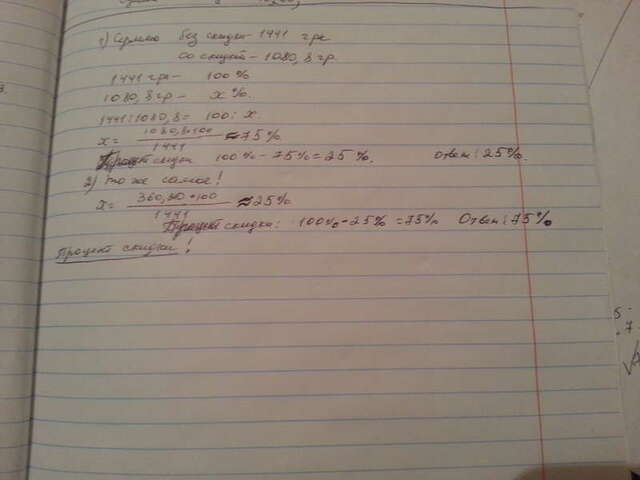 1) Сумма без скидки - 1441 грн
со скидкой - 1080,8 гр.
1441 грн - 100%
1080,8 гр - x%.
1441:1080,8 = 100:x.
x = 1080,8*100 / 1441 ≈ 75%
Процент скидки 100% - 75% = 25%. ответ: 25%.
2) то же самое!
x = 360,20*100 / 1441 ≈ 25%
Процент скидки: 100% - 25% = 75% Ответ: 75%
Процент скидки!